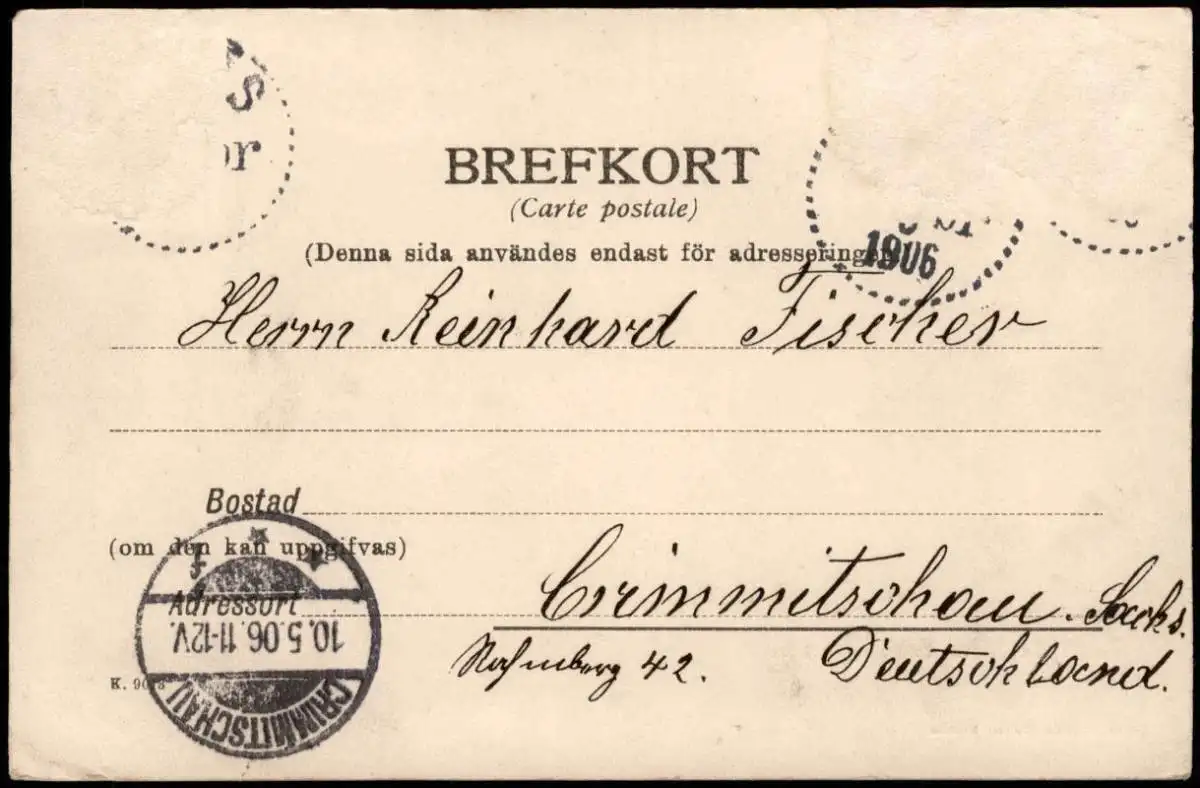 S
or
BREFKORT
(Carte postale)
(Denna sida användes endast för adresseringen)
1906
Herrn Reinhard Fischer
Bostad
(om den kan uppgifvas)
Crimmitschau. Sachs.
Adressort
10.5.06.11-12V.
42.
Deutschland.
K.
CRIMMITSCHAU